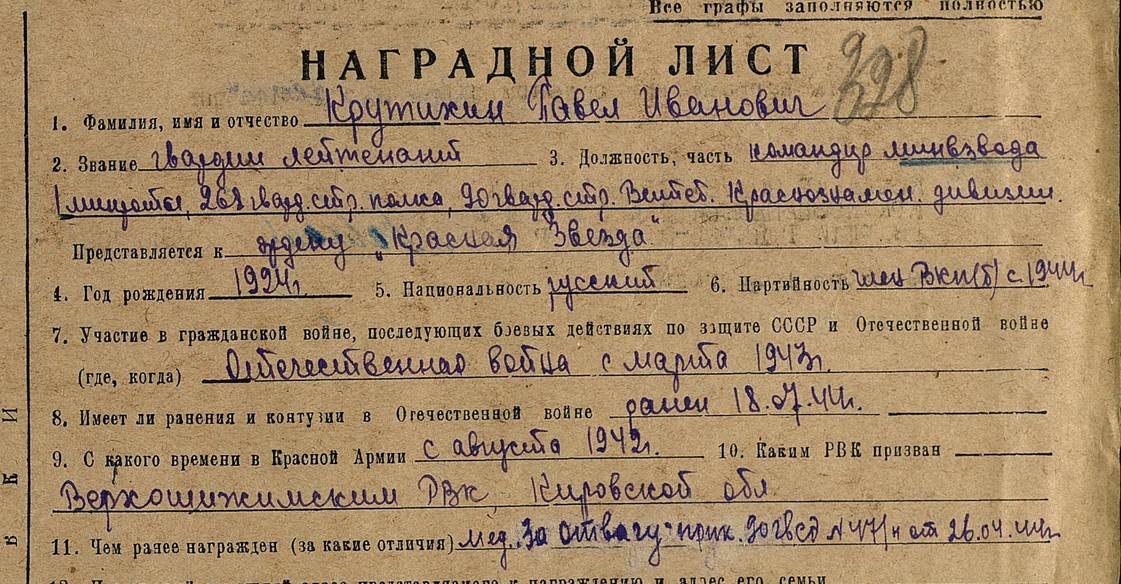 Все графы заполняются полностью
НАГРАДНОЙ ЛИСТ 328
1. Фамилия, имя и отчество Крутихин Павел Иванович
2. Звание гвардии лейтенант 3. Должность, часть командир минвзвода
1 минроты, 268 гвард. стр. полка, 90 гвард. стр. Витеб. Краснознамен. дивизии.
Представляется к ордену „Красная Звезда“
4. Год рождения 1924г. 5. Национальность русский 6. Партийность член ВКП(б) с 1944г
7. Участие в гражданской войне, последующих боевых действиях по защите СССР и Отечественной войне
(где, когда) Отечественная война с марта 1943г.
8. Имеет ли ранения и контузии в Отечественной войне ранен 18.07.44г.
9. С какого времени в Красной Армии с августа 1942г. 10. Каким РВК призван
Верхошижимским РВК Кировской обл
11. Чем ранее награжден (за какие отличия) мед. „За отвагу“ прик. 90 гвсд N 47/н от 26.04.44г